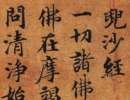 兜沙經
一切諸佛
佛在摩竭
問清淨始